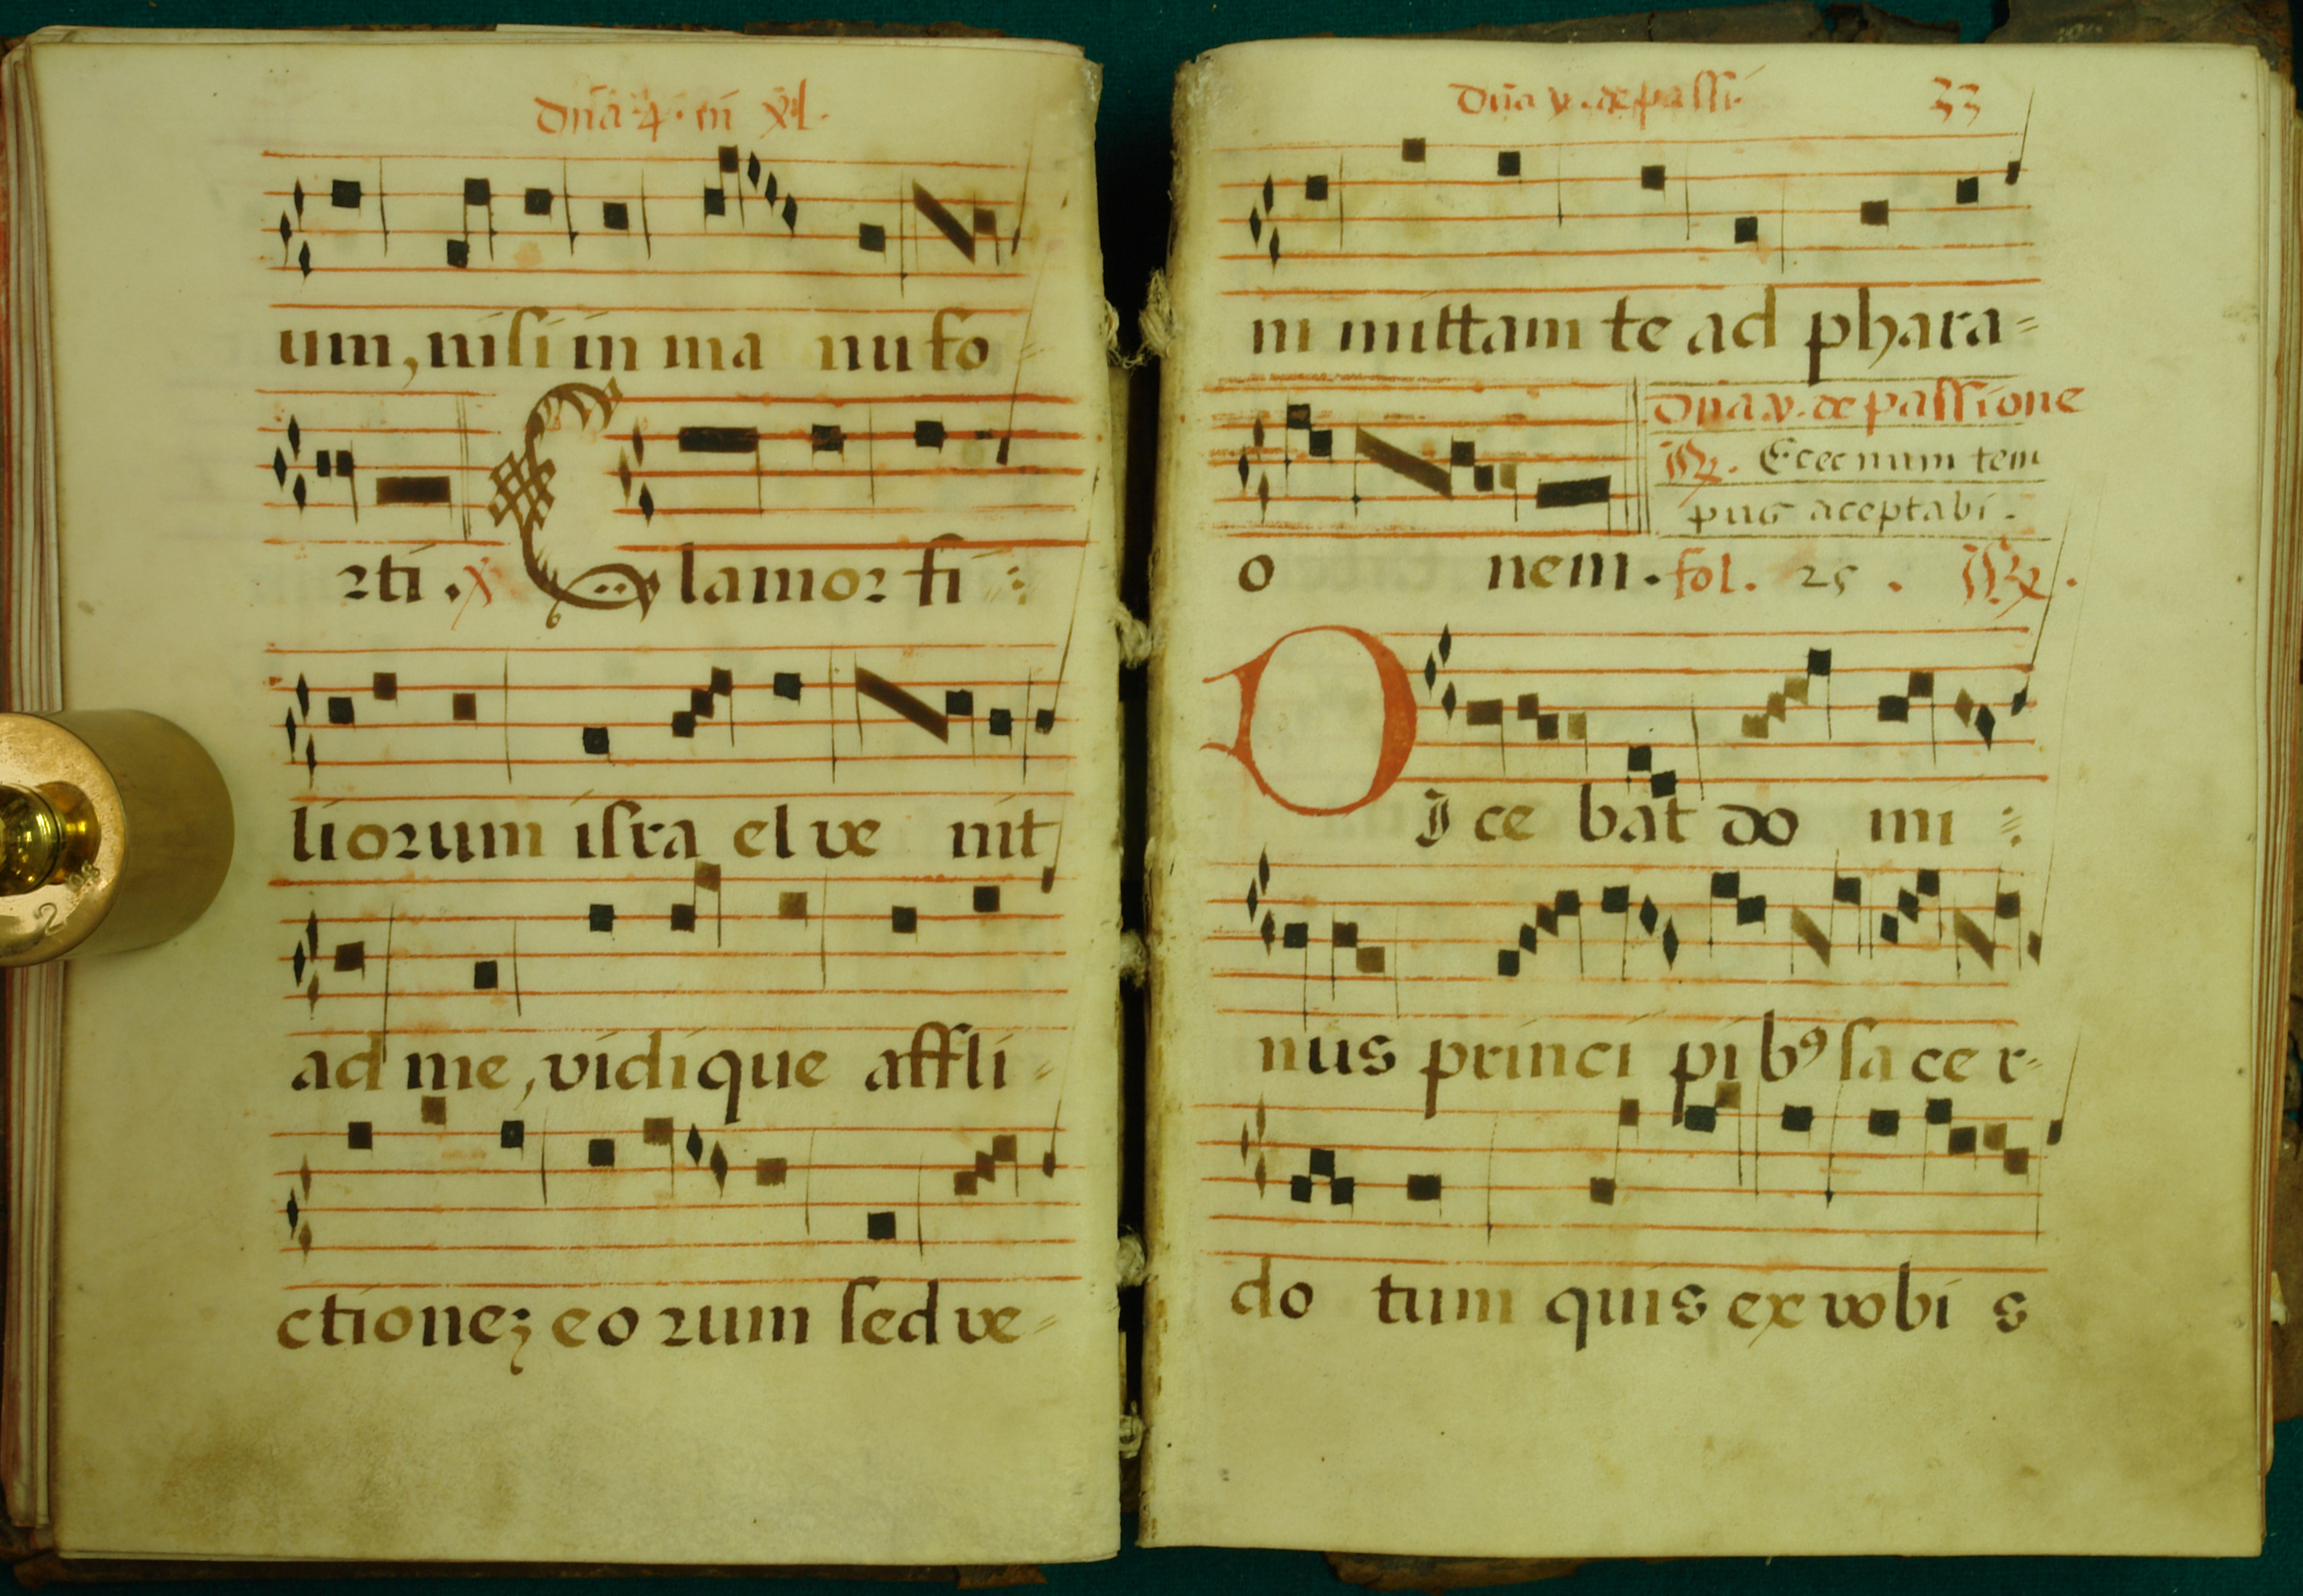 dña 4. in xl.
um, nisi in ma nu fo=
rti. Clamor fi=
liorum isra el ve nit
ad me, vidique affli=
ctionez eo rum sed ve=
dña v. de passi. 33
ni mittam te ad phara=
dña. v. de passione
℟. Ecce num tem
pus aceptabi.
o nem. fol. 25. ℟.
DIce bat do mi=
nus princi pi bꝰ sa ce r=
do tum quis ex vobi s
2